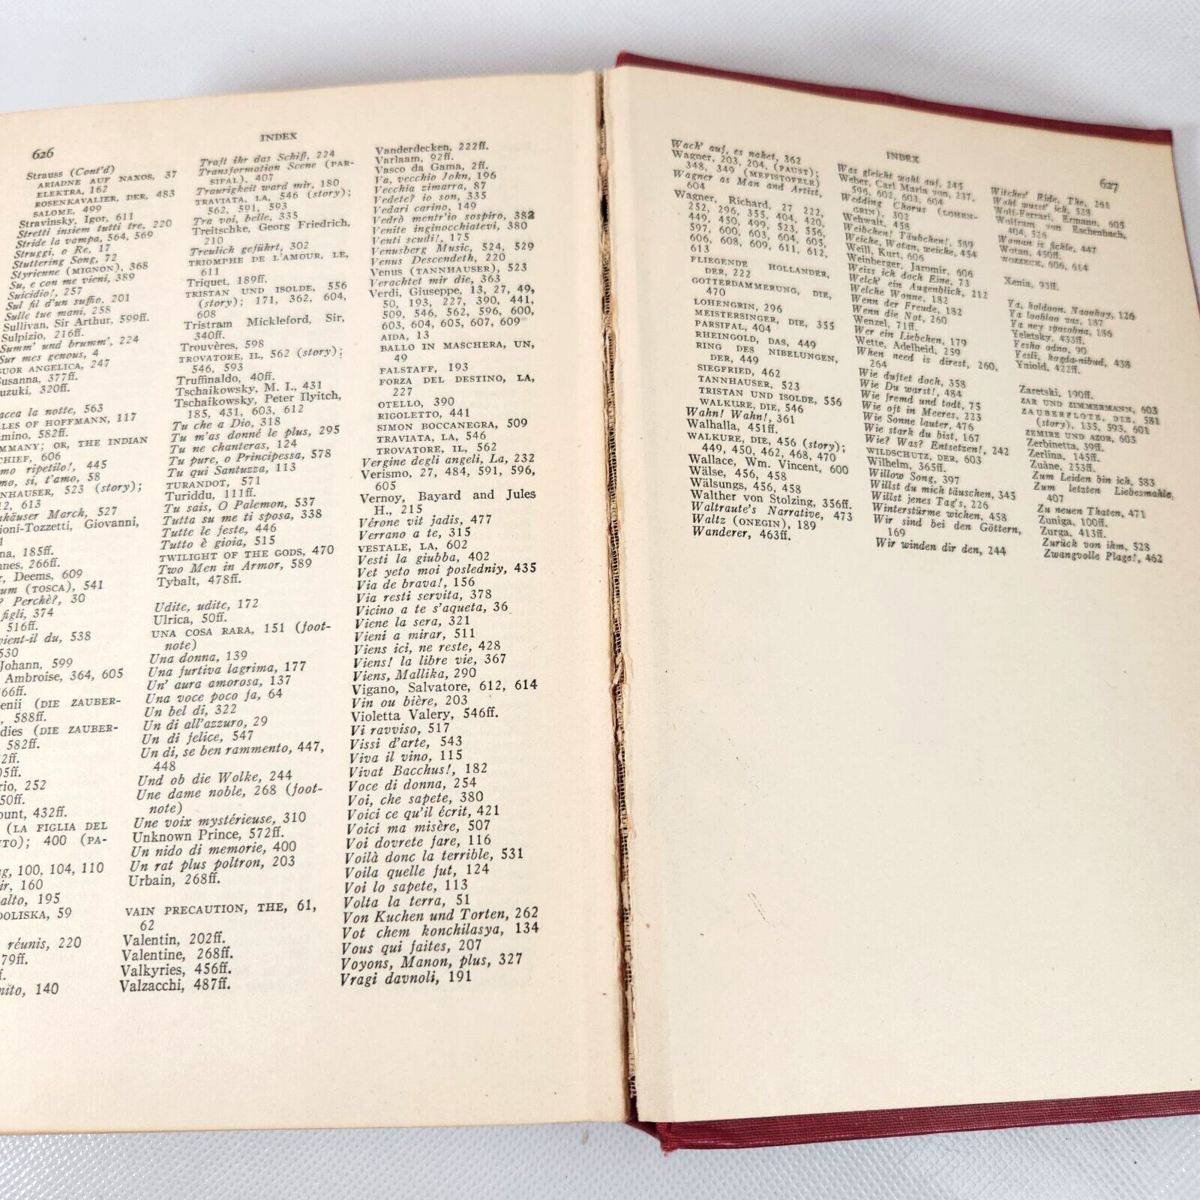 626
INDEX
Strauss (Cont'd)
ARIADNE AUF NAXOS, 37
ELEKTRA, 162
ROSENKAVALIER, DER, 483
SALOME, 499
Stravinsky, Igor, 611
Stretti insiem tutti tre, 220
Stride la vampa, 564, 569
Struggi, o Re, 17
Stuttering Song, 72
Styrienne (MIGNON), 368
Su, e con me vieni, 389
Suicidio!, 257
Sul fil d'un suffio, 201
Sulle tue mani, 258
Sullivan, Sir Arthur, 599ff.
Sulpizio, 216ff.
Summ' und brumm', 224
Sur mes genous, 4
SUOR ANGELICA, 247
Susanna, 377ff.
uzuki, 320ff.
acea la notte, 563
LES OF HOFFMANN, 117
mino, 582ff.
MMANY; OR, THE INDIAN
CHIEF, 606
mo ripetilo!, 445
mo, si, t'amo, 58
NHAUSER, 523 (story);
2, 613
häuser March, 527
ioni-Tozzetti, Giovanni,
na, 185ff.
nnes, 266ff.
r, Deems, 609
um (TOSCA), 541
? Perchè?, 30
figli, 374
516ff.
vient-il du, 538
530
Johann, 599
Ambroise, 364, 605
66ff.
enii (DIE ZAUBER-
, 588ff.
dies (DIE ZAUBER-
582ff.
2ff.
05ff.
rio, 252
50ff.
ount, 432ff.
(LA FIGLIA DEL
NTO); 400 (PA-
g, 100, 104, 110
ir, 160
alto, 195
DOLISKA, 59
réunis, 220
79ff.
f.
nito, 140
Traft ihr das Schiff, 224
Transformation Scene (PAR-
SIFAL), 407
Traurigkeit ward mir, 180
TRAVIATA, LA, 546 (story);
562, 591, 593
Tre voi, belle, 335
Treitschke, Georg Friedrich,
210
Treulich geführt, 302
TRIOMPHE DE L'AMOUR, LE,
611
Triquet, 189ff.
TRISTAN UND ISOLDE, 556
(story); 171, 362, 604,
608
Tristram Mickleford, Sir,
340ff.
Trouvères, 598
TROVATORE, IL, 562 (story);
546, 593
Truffinaldo, 40ff.
Tschaikowsky, M. I., 431
Tschaikowsky, Peter Ilyitch,
185, 431, 603, 612
Tu che a Dio, 318
Tu m'as donné le plus, 295
Tu ne chanteras, 124
Tu pure, o Principessa, 578
Tu qui Santuzza, 113
TURANDOT, 571
Turiddu, 111ff.
Tu sais, O Palemon, 537
Tutta su me ti sposa, 338
Tutte le feste, 446
Tutto è gioia, 515
TWILIGHT OF THE GODS, 470
Two Men in Armor, 589
Tybalt, 478ff.
Udite, udite, 172
Ulrica, 50ff.
UNA COSA RARA, 151 (foot-
note)
Una donna, 139
Una furtiva lagrima, 177
Un' aura amorosa, 137
Una voce poco fa, 64
Un bel di, 322
Un di all'azzuro, 29
Un di felice, 547
Un di, se ben rammento, 447,
448
Und ob die Wolke, 244
Une dame noble, 268 (foot-
note)
Une voix mystérieuse, 310
Unknown Prince, 572ff.
Un nido di memorie, 400
Un rat plus poltron, 203
Urbain, 268ff.
VAIN PRECAUTION, THE, 61,
62
Valentin, 202ff.
Valentine, 268ff.
Valkyries, 456ff.
Valzacchi, 487ff.
Vanderdecken, 222ff.
Varlaam, 92ff.
Vasco da Gama, 2ff.
Va, vecchio John, 196
Vecchia zimarra, 87
Vedete? io son, 335
Vedari carino, 149
Vedrò mentr'io sospiro, 382
Venite inginocchiatevi, 380
Venti scudi!, 175
Venusberg Music, 524, 529
Venus Descendeth, 220
Venus (TANNHAUSER), 523
Verachtet mir die, 363
Verdi, Giuseppe, 13, 27, 49,
50, 193, 227, 390, 441,
509, 546, 562, 596, 600,
603, 604, 605, 607, 609
AIDA, 13
BALLO IN MASCHERA, UN,
49
FALSTAFF, 193
FORZA DEL DESTINO, LA,
227
OTELLO, 390
RIGOLETTO, 441
SIMON BOCCANEGRA, 509
TRAVIATA, LA, 546
TROVATORE, IL, 562
Vergine degli angeli, La, 232
Verismo, 27, 484, 591, 596,
605
Vernoy, Bayard and Jules
H., 215
Vérone vit jadis, 477
Verrano a te, 315
VESTALE, LA, 602
Vesti la giubba, 402
Vet yeto moi posledniy, 435
Via de brava!, 156
Via resti servita, 378
Vicino a te s'aqueta, 36
Viene la sera, 321
Vieni a mirar, 511
Viens ici, ne reste, 428
Viens! la libre vie, 367
Viens, Mallika, 290
Vigano, Salvatore, 612, 614
Vin ou bière, 203
Violetta Valery, 546ff.
Vi ravviso, 517
Vissi d'arte, 543
Viva il vino, 115
Vivat Bacchus!, 182
Voce di donna, 254
Voi, che sapete, 380
Voici ce qu'il écrit, 421
Voici ma misère, 507
Voi dovrete fare, 116
Voilà donc la terrible, 531
Voila quelle fut, 124
Voi lo sapete, 113
Volta la terra, 51
Von Kuchen und Torten, 262
Vot chem konchilasya, 134
Vous qui faites, 207
Voyons, Manon, plus, 327
Vragi davnoli, 191
INDEX
627
Wach' auf, es nahet, 362
Wagner, 203, 204 (FAUST);
348, 349 (MEFISTOFELE)
Wagner as Man and Artist,
604
Wagner, Richard, 27 222,
252, 296, 355, 404, 420,
449, 450, 499, 523, 556,
597, 600, 603, 604, 605,
606, 608, 609, 611, 612,
613
FLIEGENDE HOLLANDER,
DER, 222
GOTTERDAMMERUNG, DIE,
470
LOHENGRIN, 296
MEISTERSINGER, DIE, 355
PARSIFAL, 404
RHEINGOLD, DAS, 449
RING DES NIBELUNGEN,
DER, 449
SIEGFRIED, 462
TANNHAUSER, 523
TRISTAN UND ISOLDE, 556
WALKURE, DIE, 546
Wahn! Wahn!, 361
Walhalla, 451ff.
WALKURE, DIE, 456 (story);
449, 450, 462, 468, 470
Wallace, Wm. Vincent, 600
Wälse, 456, 458
Wälsungs, 456, 458
Walther von Stolzing, 356ff.
Waltraute's Narrative, 473
Waltz (ONEGIN), 189
Wanderer, 463ff.
Was gleicht wohl auf, 245
Weber, Carl Maria von, 237,
596, 602, 603, 604
Wedding Chorus (LOHEN-
GRIN), 302
Wehwalt, 458
Weibchen! Täubchen!, 589
Weiche, Wotan, weiche, 454
Weill, Kurt, 606
Weinberger, Jaromir, 606
Weiss ich doch Eine, 73
Welch' ein Augenblick, 212
Welche Wonne, 182
Wenn der Freude, 182
Wenn die Not, 260
Wenzel, 71ff.
Wer ein Liebchen, 179
Wette, Adelheid, 259
When need is direst, 260,
264
Wie duftet doch, 358
Wie Du warst!, 484
Wie fremd und todt, 75
Wie oft in Meeres, 223
Wie Sonne lauter, 476
Wie stark du bist, 167
Wie? Was? Entsetzen!, 242
WILDSCHUTZ, DER, 603
Wilhelm, 365ff.
Willow Song, 397
Willst du mich täuschen, 345
Willst jenes Tag's, 226
Winterstürme wichen, 458
Wir sind bei den Göttern,
169
Wir winden dir den, 244
Witches' Ride, The, 261
Wohl wusst' ich, 528
Wolf-Ferrari, Ermann, 605
Wolfram von Eschenbach,
404, 526
Woman is fickle, 447
Wotan, 450ff.
WOZZECK, 606, 614
Xenia, 93ff.
Ya, koldoon, Navohoy, 126
Ya looblao vas, 187
Ya ney sposobna, 186
Yeletsky, 433ff.
Yesho odno, 90
Yesli, kogda-nibud, 438
Yniold, 422ff.
Zaretski, 190ff.
ZAR UND ZIMMERMANN, 603
ZAUBERFLOTE, DIE, 581
(story), 135, 593, 601
ZEMIRE UND AZOR, 603
Zerbinetta, 39ff.
Zerlina, 145ff.
Zuàne, 253ff.
Zum Leiden bin ich, 583
Zum letzten Liebesmahle,
407
Zu neuen Thaten, 471
Zuniga, 100ff.
Zurga, 413ff.
Zurück von ihm, 528
Zwangvolle Plage!, 462